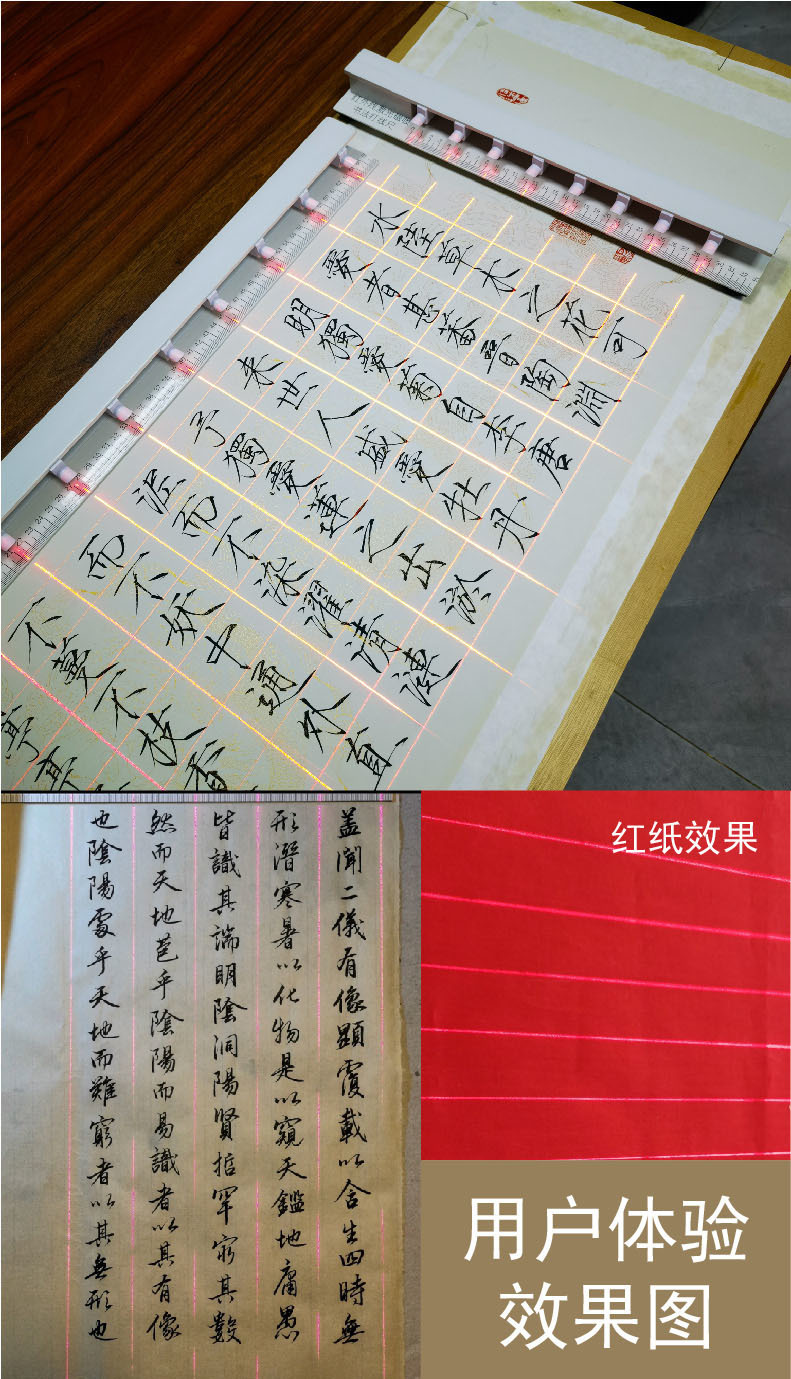 书法打线尺
水陸草木之花可
愛者甚蕃晋陶淵
明獨愛菊自李唐
来世人盛愛牡丹
予獨愛蓮之出淤
泥而不染濯清漣
而不妖中通外直
不蔓不枝香
亭亭
盖聞二儀有像顯覆載以含生四時無
形潛寒暑以化物是以窺天鑑地庸愚
皆識其端明陰洞陽賢哲罕窮其數
然而天地苞乎陰陽而易識者以其有像
也陰陽處乎天地而難窮者以其無形也
红纸效果
用户体验
效果图